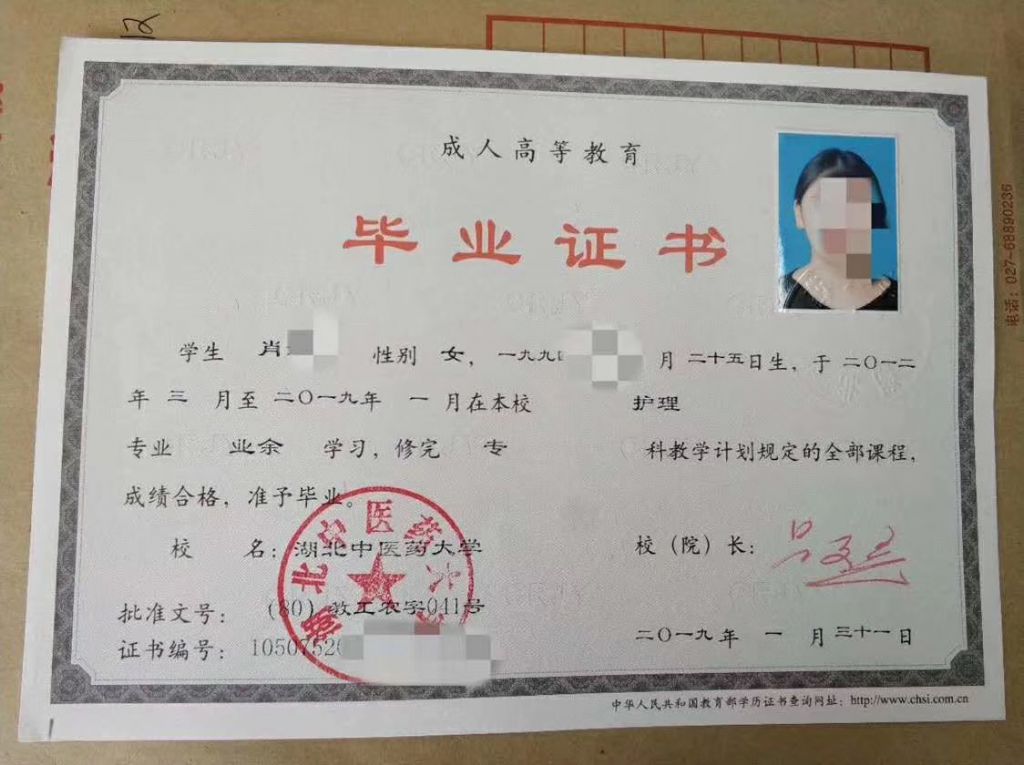 成人高等教育
毕业证书
学生 肖 性别 女，一九九 月二十五日生，于二〇一二
年 三 月至 二〇一九年 一 月在本校 护理
专业 业余 学习，修完 专 科教学计划规定的全部课程，
成绩合格，准予毕业。
校 名：湖北中医药大学 校（院）长：
批准文号：(80)教工农字041号
证书编号：1050752 二〇一九年 一 月 三十一日
湖北中医药大学
中华人民共和国教育部学历证书查询网址：http://www.chsi.com.cn
电话：027-68890236